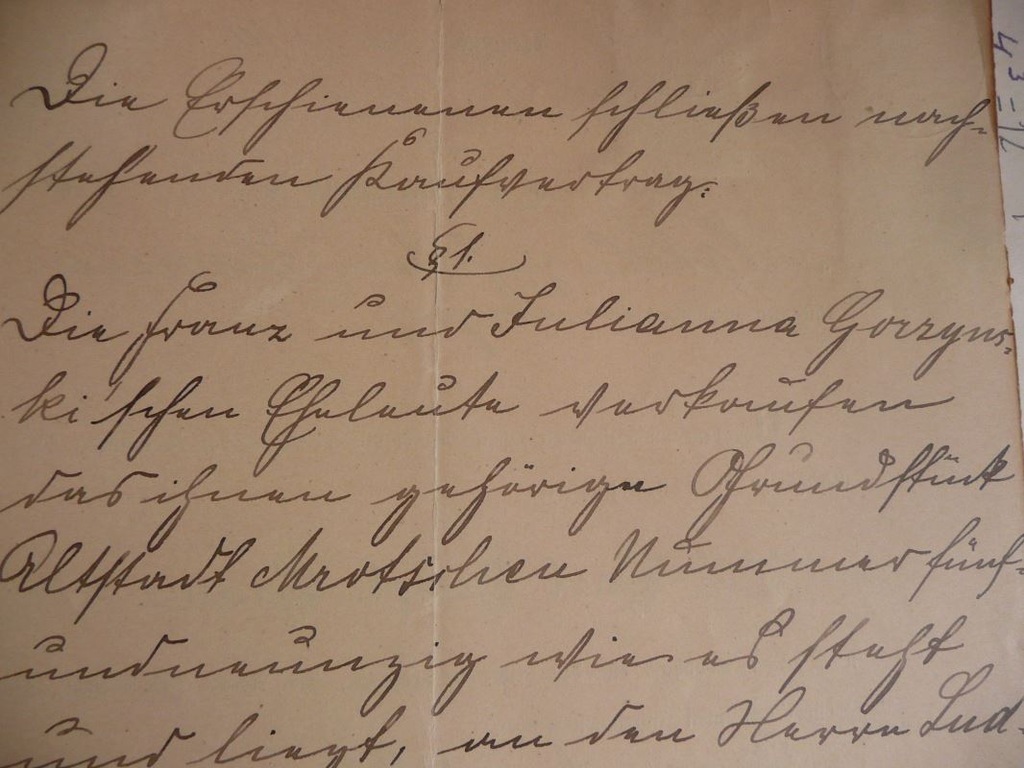 Die Erschienenen schließen nach-
stehenden Kaufvertrag:
§ 1.
Die Franz und Julianna Gorzyns-
ki'schen Eheleute verkaufen
das ihnen gehörige Grundstück
Altstadt Mrotschen Nummer fünf-
undneunzig wie es steht
und liegt, an den Herrn Lud-